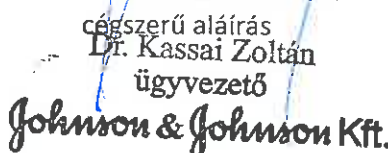 cégszerű aláírás
Dr. Kassai Zoltán
ügyvezető
Johnson & Johnson Kft.